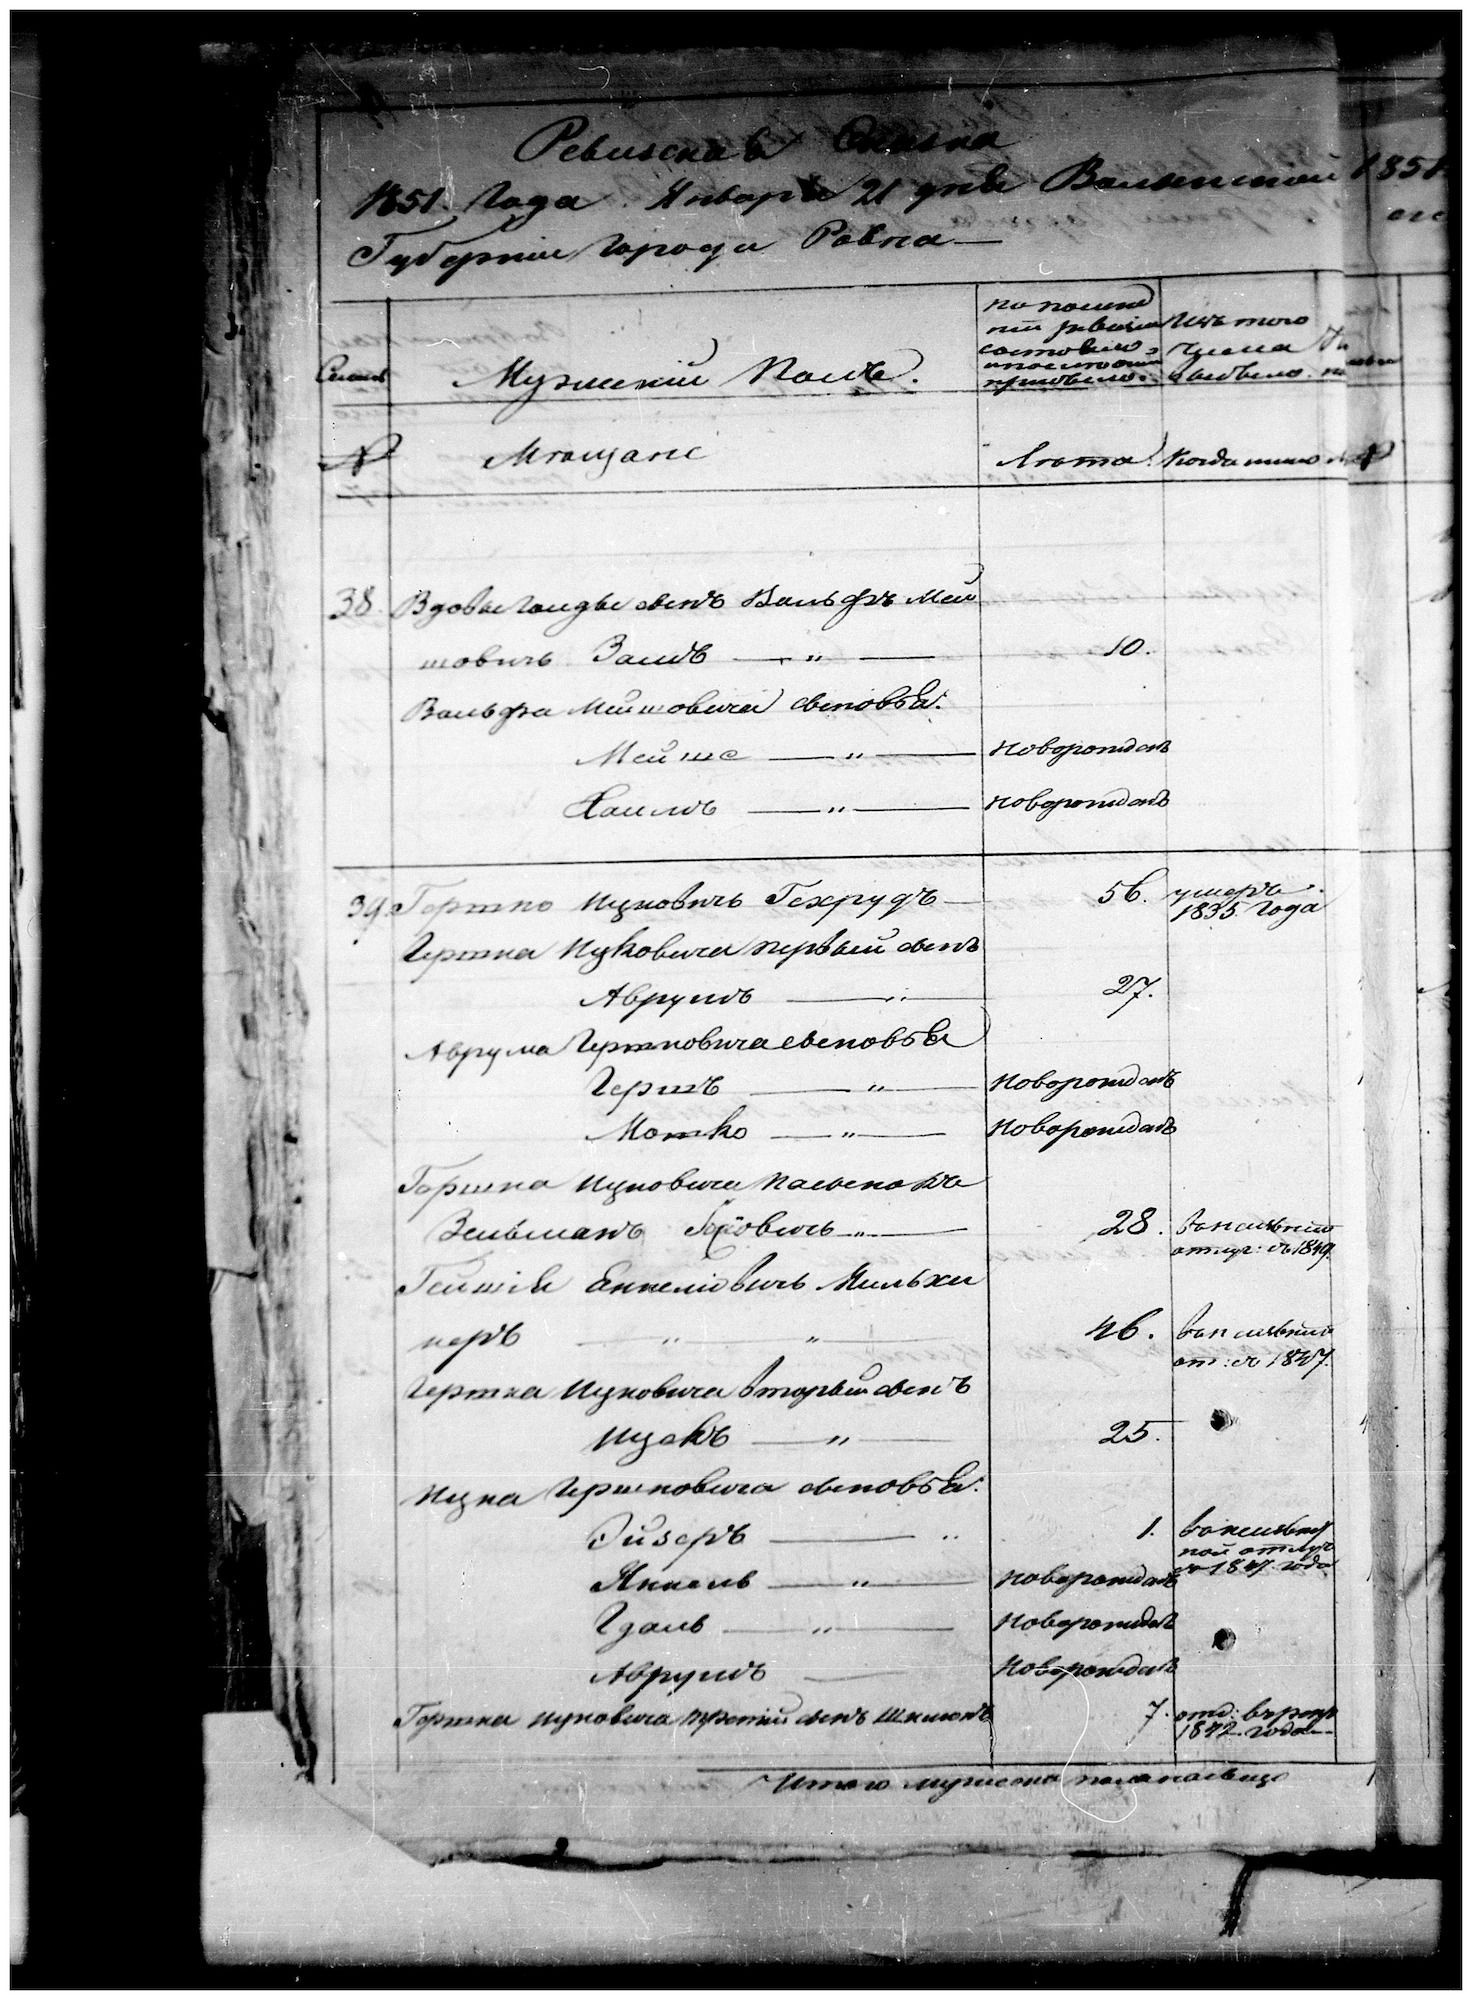 Ревизская Сказка
1851. Года Января 21 дня Волынской
Губернии Города Ровна
1851
Семьи
Мужеский Полъ.
по послед
ней ревизии
состояло и
после оной
прибыло
Изъ того
числа
выбыло
№
Мещане
Лета
Когда имено
38. Вдовы сынъ Вольфъ Мей
шовичь —〃— 10.
Вольфа Мейшовича сыновья:
Мейше —〃— новорожденъ
Хаимъ —〃— новорожденъ
39. Гершко Ицковичь Гехрудъ — 56. умеръ
1835 Года
Гершка Ицковича первый сынъ
Аврумъ —〃— 27.
Аврума Гершковича сыновья
Гершъ —〃— новорожденъ
Мошко —〃— новорожденъ
Гершка Ицковича пасынокъ
Зельманъ 〃— 28. 
отлуч: съ 1849.
Янкелiовичь Мильхи
керъ 〃 〃 46.
от: съ 1847.
Гершка Ицковича вторый сынъ
Ицекъ —〃— 25.
Ицка Гершковича сыновья:
Эйзеръ — 〃 1.
ной отлуч
съ 1847 года
Янкель —〃— новорожденъ
Гдаль —〃— новорожденъ
Аврумъ — новорожденъ
Гершка Ицковича третiй сынъ Шлиома 7. отд: въ рекр
1842. года
Итого мужеска пола наличо